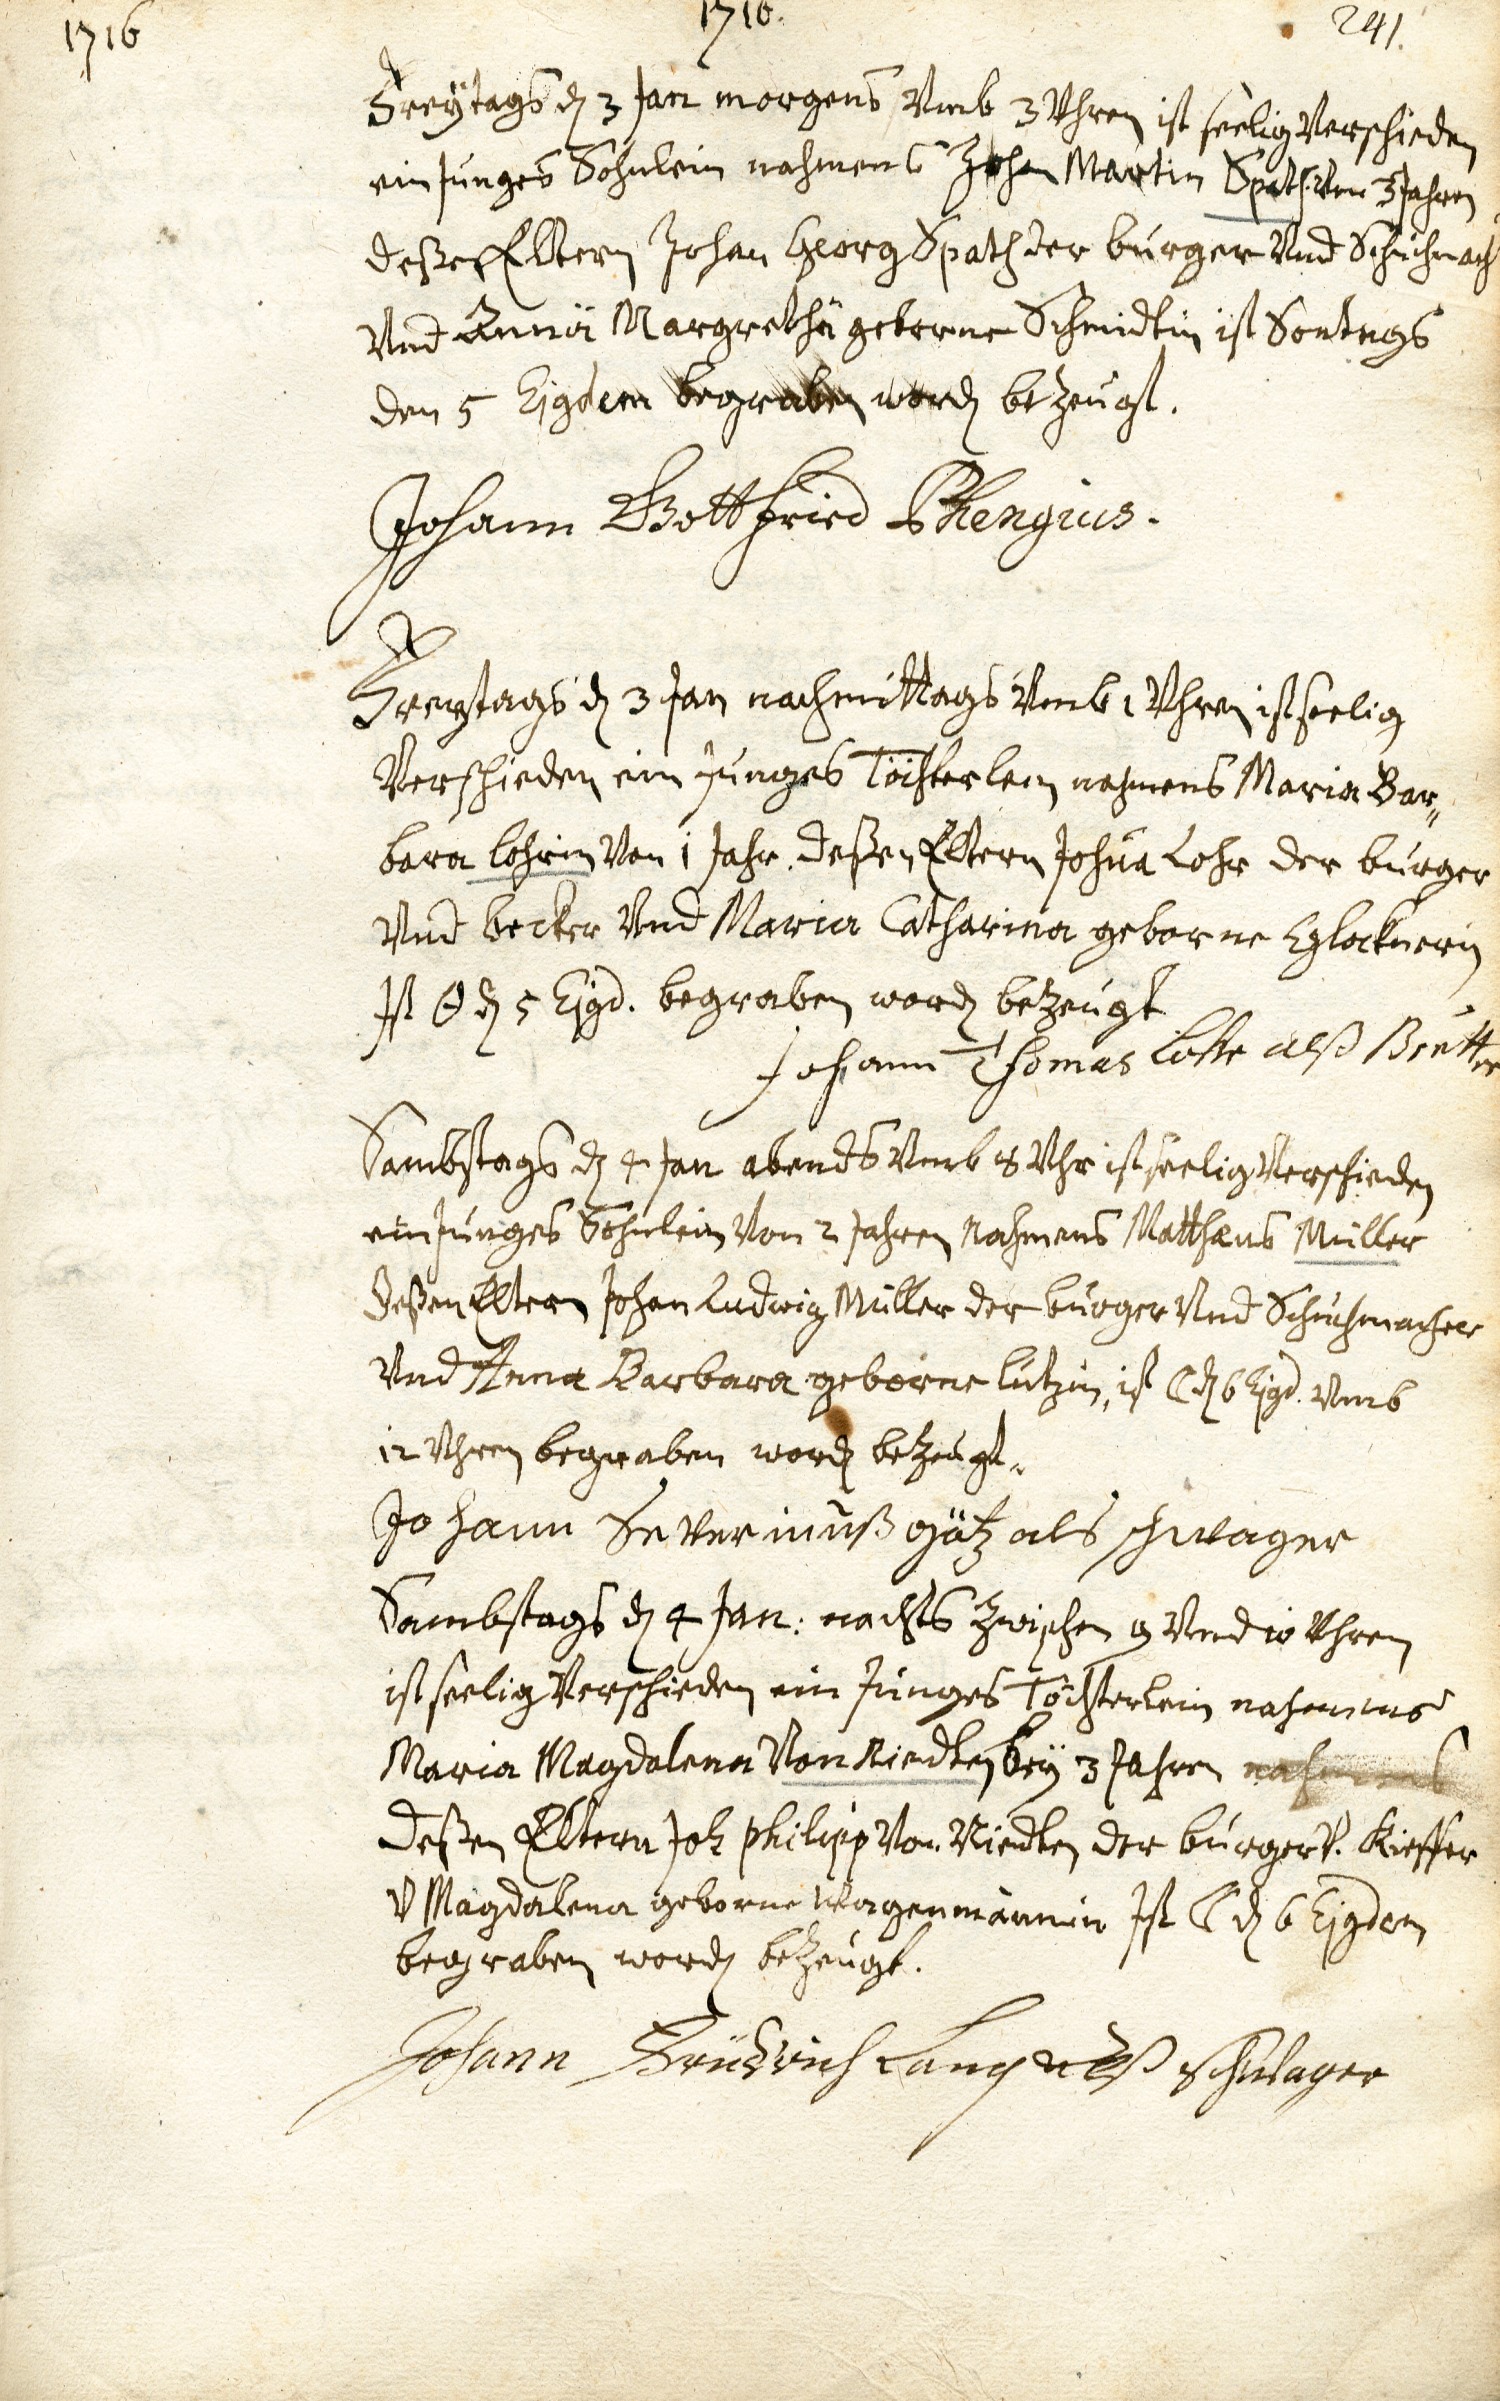 1716
1716.
241.
Freytags dẽ 3 Jan morgens Vmb 3 Vhren ist seelig Verschieden
ein Junges Söhnlein nahmens Johan Martin Späth Von 3 Jahren
deßen Eltern Johan Georg Späth der burger Vnd Schuhmach
Vnd Anna Margretha geborne Schmidtin ist Sontags
den 5 Ejgdem begraben wordẽ bezeugt.
Johann Gottfried Rhengius.
Freytags dẽ 3 Jan nachmittags Vmb 1 Vhren ist seelig
Verschieden ein Junges Töchterlein nahmens Maria Bar„
bara Lohrin Von 1 Jahr. deßen Eltern Joshua Lohr der burger
Vnd becker Vnd Maria Catharina geborne Glocknerin
Ist ☉ dẽ 5 Ejgd. begraben wordẽ bezeugt
Johann Thomas als
Sambstags dẽ 4 Jan abends Vmb 8 Vhr ist seelig Verschieden
ein Junges Söhnlein Von 2 Jahren Nahmens Matthæus Müller
deßen Eltern Johan Ludwig Müller der burger Vnd Schuhmacher
Vnd Anna Barbara geborne Lutzin, ist ☾ dẽ 6 Ejgd. Vmb
12 Vhren begraben wordẽ bezeugt.
Johann Severinuß götz als schwager
Sambstags dẽ 4 Jan: nachts zwischen 9 Vnd 10 Vhren
ist seelig Verschieden ein Junges Töchterlein nahmens
Maria Magdalena Von Riedten bey 3 Jahren nahmens
deßen Eltern Joh philipp Von Riedten der burger V. Kieffer
V Magdalena geborne Wagenmännin Ist ☾ dẽ 6 Ejgdem
begraben wordẽ bezeugt.
Johann Friedrich Lang alß schwager